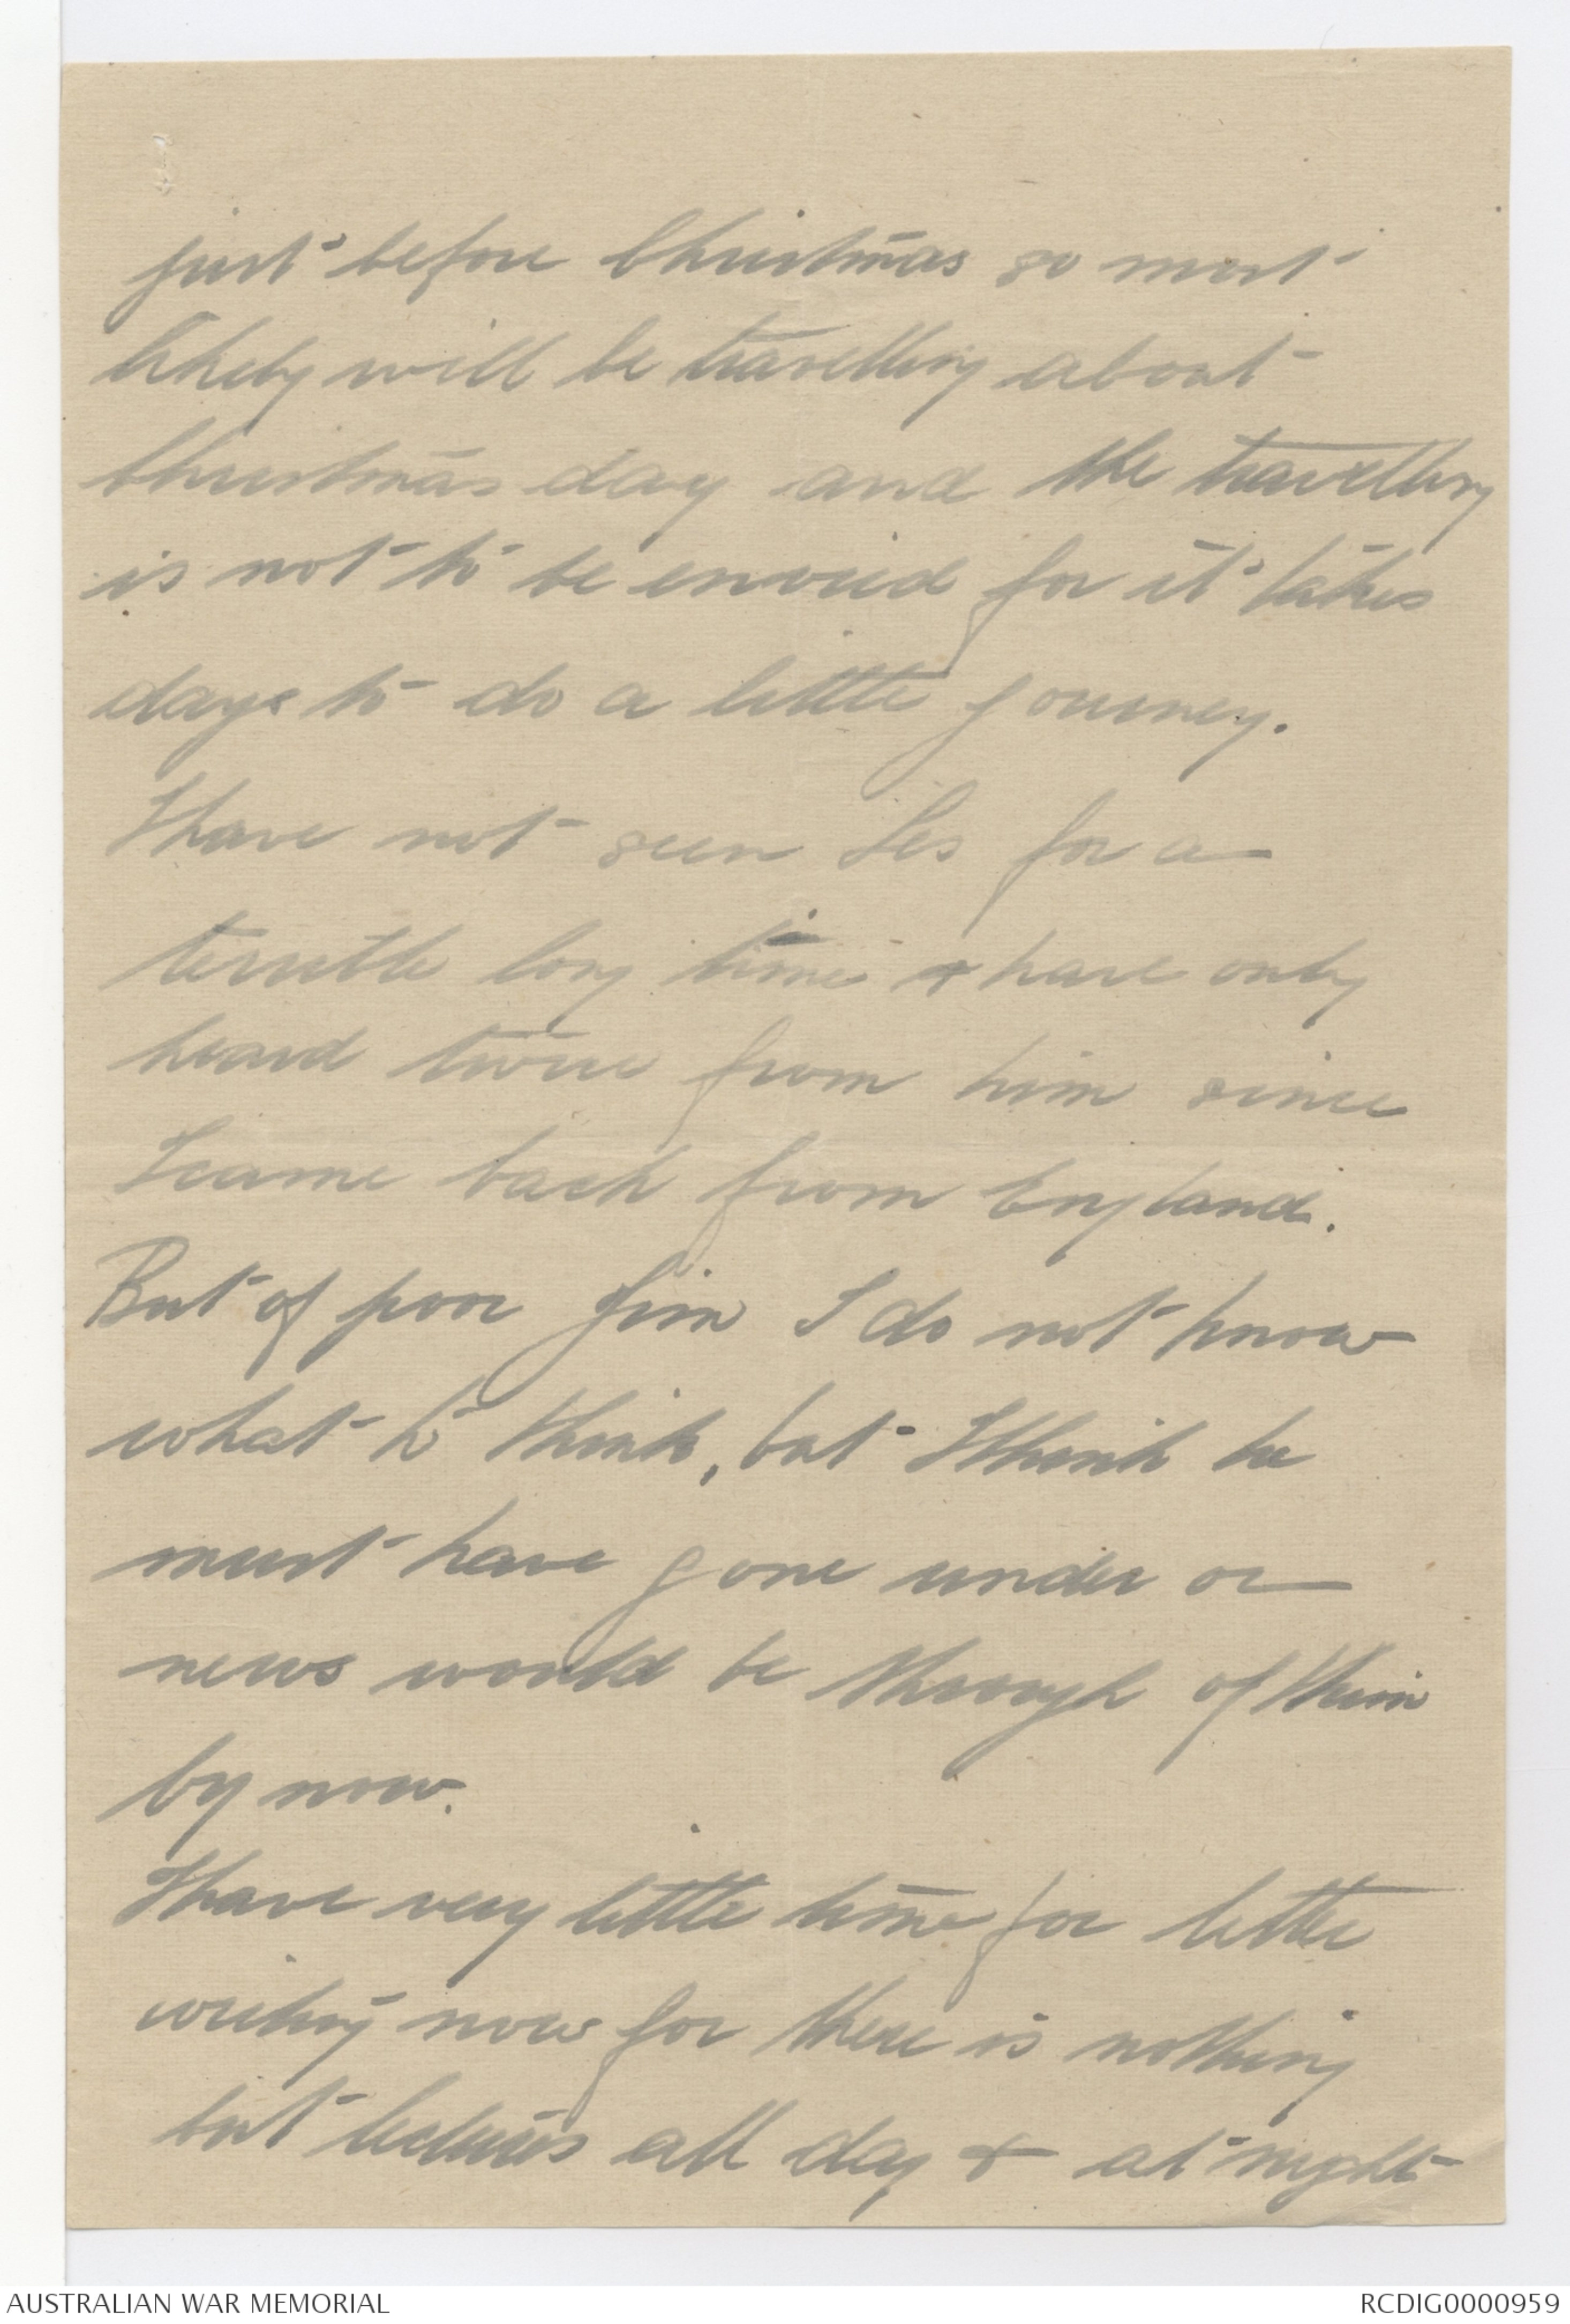 just before Christmas so most
likely will be travelling about
Christmas day and the travelling
is not to be envied for it takes
days to do a little journey.
I have not seen Les for a
terrible long time & have only
heard twice from him since
I came back from England.
But of poor Jim I do not know
what to think, but I think he
must have gone under or
news would be through of him
by now.
I have very little time for letter
writing now for there is nothing
but lectures all day & at night
AUSTRALIAN WAR MEMORIAL
RCDIG0000959